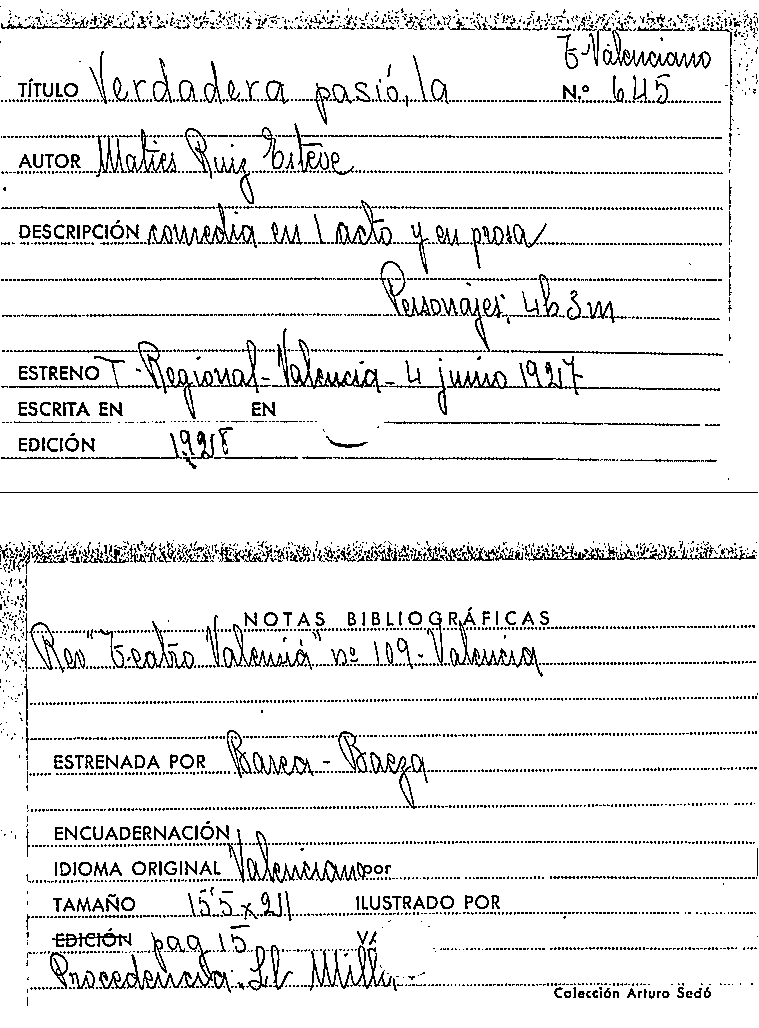 T-Valenciano
TÍTULO Verdadera pasió, la N.º 645
AUTOR Maties Ruiz Esteve
DESCRIPCIÓN comedia en 1 acto y en prosa
Personajes; 4h 3m
ESTRENO T-Regional-Valencia-4 junio 1927
ESCRITA EN EN
EDICIÓN 1928
NOTAS BIBLIOGRÁFICAS
Rev "Teatro Valensiá" nº 109-Valencia
ESTRENADA POR Barea-Baeza
ENCUADERNACIÓN
IDIOMA ORIGINAL Valenciano por
TAMAÑO 15'5 x 21 ILUSTRADO POR
EDICIÓN pag 15
Procedencia: Lb Millá
Colección Arturo Sedó